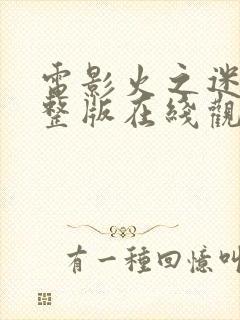 電影火之迷
整版在綫觀
有一種回憶叫